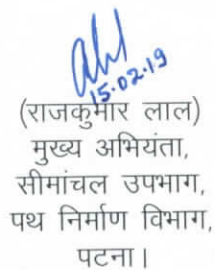 15.02.19
(राजकुमार लाल)
मुख्य अभियंता,
सीमांचल उपभाग,
पथ निर्माण विभाग,
पटना।